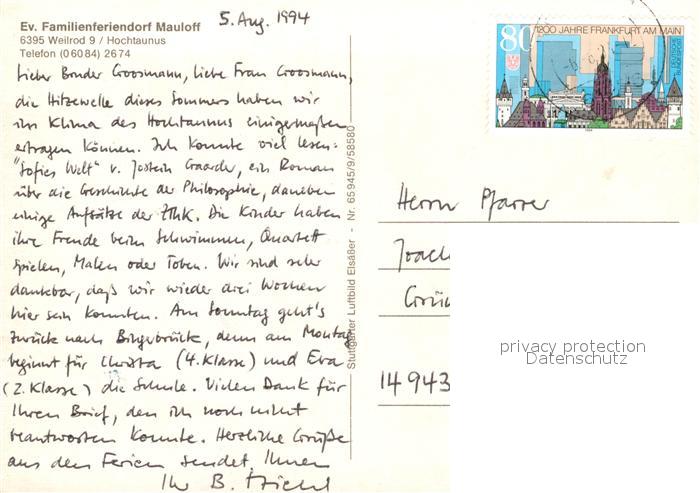 Ev. Familienferiendorf Mauloff
6395 Weilrod 9 / Hochtaunus
Telefon (06084) 2674
5. Aug. 1994
Lieber Bruder Groosmann, liebe Frau Groosmann,
die Hitzewelle dieses Sommers haben wir
im Klima des Hochtaunus einigermaßen
ertragen können. Ich konnte viel lesen:
"Sofies Welt" v. Jostein Gaarder, ein Roman
über die Geschichte der Philosophie, daneben
einige Aufsätze der ZThK. Die Kinder haben
ihre Freude beim Schwimmen, Quartett
spielen, Malen oder Toben. Wir sind sehr
dankbar, daß wir wieder drei Wochen
hier sein konnten. Am Sonntag geht's
zurück nach Bingerbrück, denn am Montag
beginnt für Christa (4. Klasse) und Eva
(2. Klasse) die Schule. Vielen Dank für
Ihren Brief, den ich noch nicht
beantworten konnte. Herzliche Grüße
aus den Ferien sendet Ihnen
Ihr B.
Stuttgarter Luftbild Elsäßer - Nr. 65 945/9/58580
80
1200 JAHRE FRANKFURT AM MAIN
DEUTSCHE BUNDESPOST
1994
Herrn Pfarrer
Joac
Grü
14943
privacy protection
Datenschutz